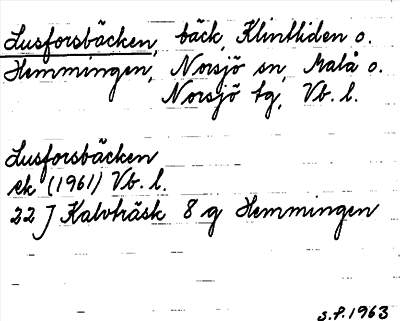 Lusforsbäcken, bäck, Klintliden o.
Hemmingen, Norsjö sn, Malå o.
Norsjö tg, Vb. l.
Lusforsbäcken
ek (1961) Vb. l.
22 J Kalvträsk 8 g Hemmingen
S.P. 1963